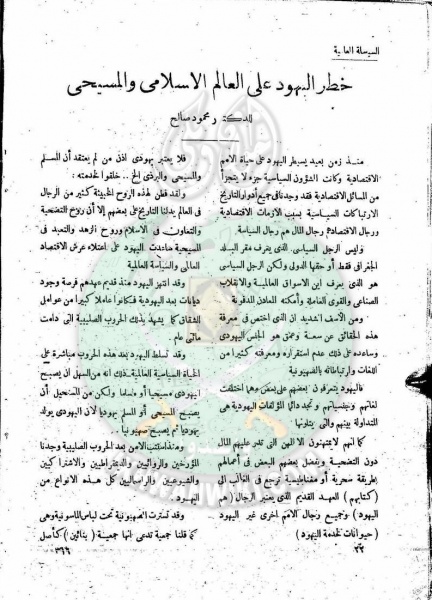 السياسة العالمية
خطر اليهود على العالم الاسلامى والمسيحى
للدكتور محمود صالح
منذ زمن بعيد يسيطر اليهود على حياة الامم
الاقتصادية وكانت الشؤون السياسية جزء لا يتجزأ
من المسائل الاقتصادية فقد وجدنا فى جميع أدوار التاريخ
الارتباكات السياسية بسبب الأزمات الاقتصادية
ورجال الاقتصاد ورجال المال هم رجال السياسة
وليس الرجل السياسى الذى يعرف مقر البلد
الجغرافى فقط أو حقها الدولى ولكن الرجل السياسى
هو الذى يعرف ابن الاسواق العالمية والانقلاب
الصناعى والقوى العاملة وأمكنة المعادن المدفونة
ومن الأسف الشديد ان الذى اختص فى معرفة
هذه الحقائق عن سعة وعمق هو الجنس اليهودى
وساعده على ذلك عدم استقراره ومعرفته كثيرا من
اللغات وارتباطاته بالصهيونية
فاليهود يتعرفون بعضهم على بعض مهما اختلفت
لغاتهم وجنسياتهم وتجد دائما المؤلفات اليهودية هى
المتداولة بينهم والتى يتلونها
كما انهم لا يمتهنون الا المهن التى تدر عليهم المال
دون التضحية ويفضل بعضهم البعض فى أعمالهم
بطريقة سحرية أو مغناطيسية ترجع فى الغالب الى
(كتابهم) العهد القديم الذى يعتبر الرجال (هم
اليهود) وجميع رجال الأمم اخرى غير اليهود
(حيوانات لخدمة اليهود)
٢٢
فلا يعتبر يهودى اذن من لم يعتقد أن المسلم
والمسيحى والبوذى الخ .. خلقوا لخدمته :
ولقد فطن لهذه الروح الخبيثة كثير من الرجال
فى العالم يدلنا التاريخ على بعضهم إلا أن روح التضحية
والتعاون فى الاسلام وروح الزهد والتعبد فى
المسيحية ساعدت اليهود على اعتلاء عرش الاقتصاد
العالمى والسياسة العالمية
وقد انتهز اليهود منذ قديم عهدهم فرصة وجود
ديانات بعد اليهودية فكانوا عاملا كبيرا من عوامل
الشقاق كما يشهد بذلك الحروب الصليبية التى دامت
مائتى عام .
وقد تسلط اليهود بعد هذه الحروب مباشرة على
الحياة السياسية العالمية . ذلك انه من السهل أن يصبح
اليهودى مسيحيا أو مسلما ولكن من المستحيل أن
يصبح المسيحى أو المسلم يهوديا لأن اليهودى يولد
يهوديا لم يصبح صهيونيا
ومنذ استتب الأمن بعد الحروب الصليبية وجدنا
المؤرخين والروائيين والديمقراطيين والاشتراكيين
والشيوعيين والرأسماليين كل هذه الانواع من
اليهود .
وقد تسترت الصهيونية تحت لباس الماسونية وهى
كما قلنا جمعية تدعى انها جمعية (بنائين) كأصل
٣٦٦